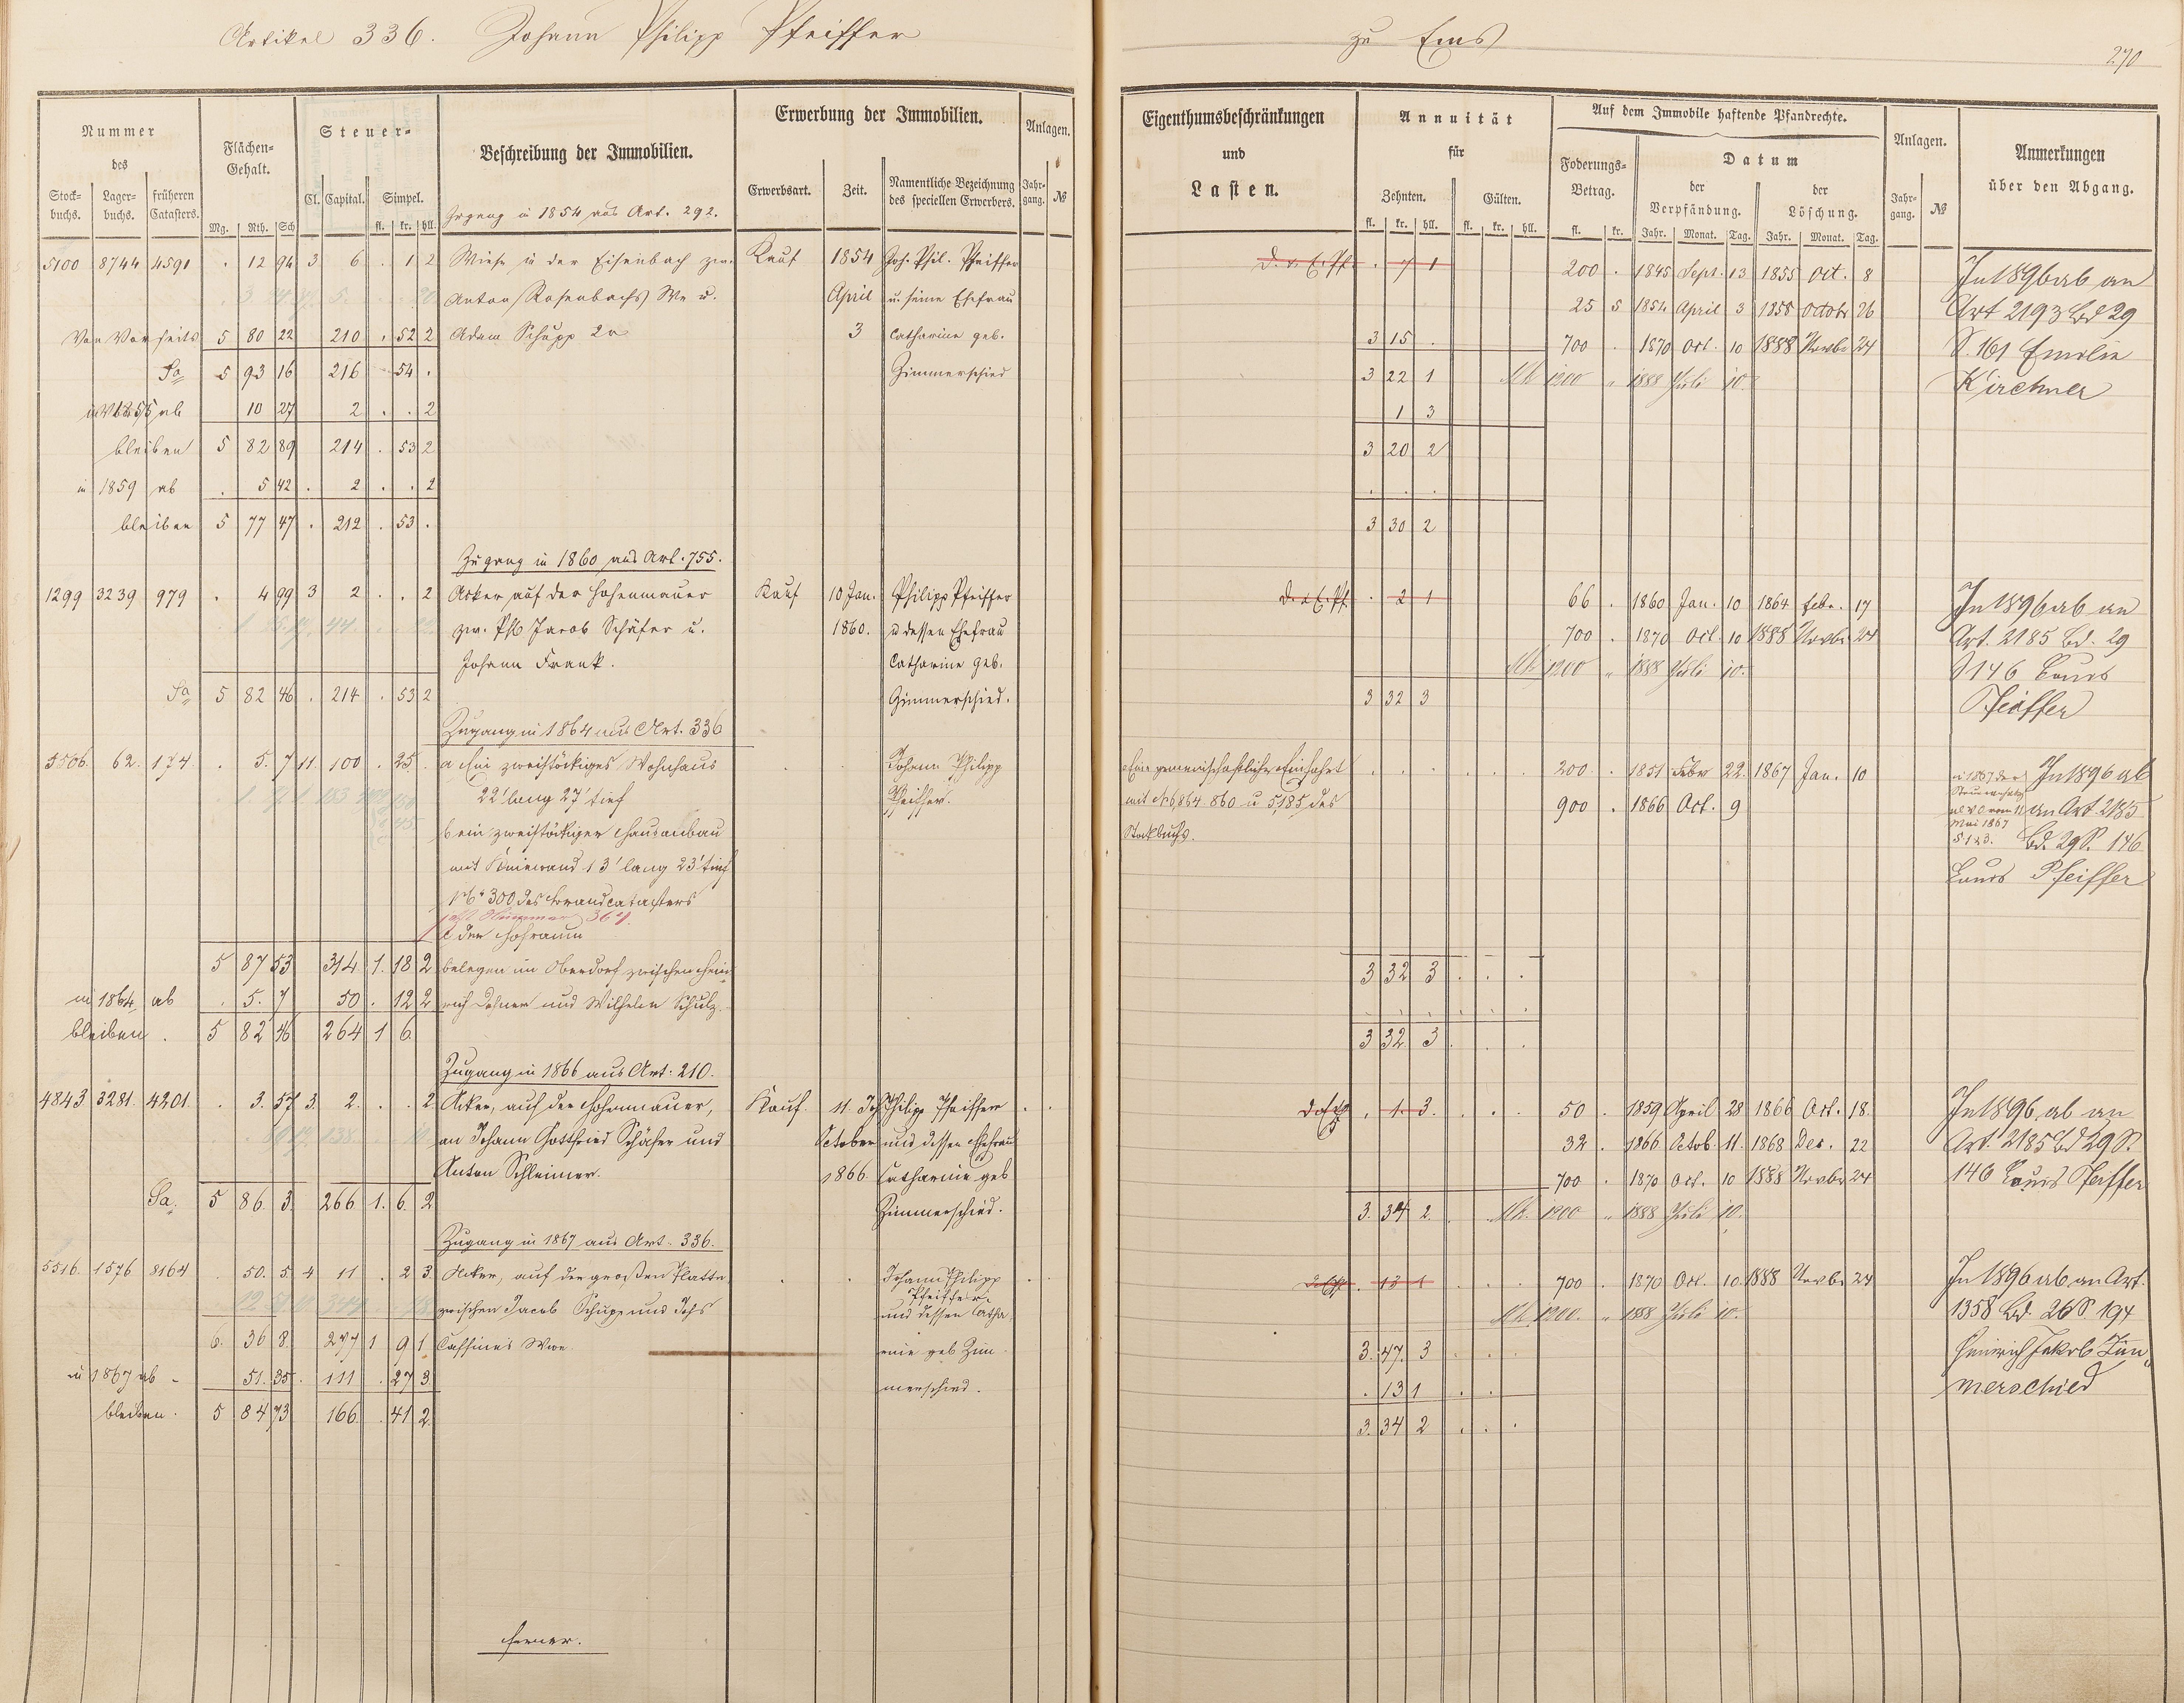 Artikel 336. Johann Philipp Pfeiffer
zu Ems
290
Nummer
des
Stock-
buchs.
Lager-
buchs.
früheren
Catasters.
Flächen-
Gehalt.
Mg. Rth. Sch
Steuer-
Cl. Capital. Simpel.
fl. kr. hll.
Beschreibung der Immobilien.
Erwerbung der Immobilien.
Erwerbsart. Zeit. Namentliche Bezeichnung
des speciellen Erwerbers.
Anlagen.
Jahr-
gang. №
Eigenthumsbeschränkungen
und
Lasten.
Annuität
für
Zehnten. Gülten.
fl. kr. hll. fl. kr. hll.
Auf dem Immobile haftende Pfandrechte.
Foderungs-
Betrag.
fl. kr.
Datum
der
Verpfändung.
der
Löschung.
Jahr. Monat. Tag. Jahr. Monat. Tag.
Anlagen.
Jahr-
gang. №
Anmerkungen
über den Abgang.
Zugang in 1854 aus Art. 292.
5100 8744 4591 . 12 94 3 6 . 1 2 Wiese in der Eisenbach zw. Kauf 1854 Joh. Phil. Pfeiffer
Anton Rosenbachs We u. April u. seine Ehefrau
Von Vorseits 5 80 22 210 . 52 2 Adam Schupp 2r 3 Catharine geb.
Sa 5 93 16 216 54 . Zimmerschied
in 1855 ab 10 27 2 . . 2
bleiben 5 82 89 214 . 53 2
in 1859 ab . 5 42 . 2 . . 2
bleiben 5 77 47 . 212 . 53 .
Zugang in 1860 aus Art. 755.
1299 3239 979 . 4 99 3 2 . . 2 Acker auf der Hohenmauer Kauf 10 Jan. Philipp Pfeiffer
zw. Phil Jacob Schäfer u. 1860. u dessen Ehefrau
Johann Frank. Catharine geb.
Sa 5 82 46 . 214 . 53 2 Zimmerschied.
Zugang in 1864 aus Art. 336
5506. 62. 174. . 5. 7 11. 100 . 25 . a Ein zweistöckiges Wohnhaus Johann Philipp
22' lang 27' tief Pfeiffer.
b ein zweistöckiger Hausanbau
mit Kniewand 13' lang 23' tief
No 300 des Brandcatasters
c der Hofraum
5 87 53 314 1. 18 2 belegen im Oberdorf zwischen Hein-
in 1864 ab . 5. 7 50 . 12 2 rich Dohner und Wilhelm Schulz.
bleiben . 5 82 46 264 1 6.
Zugang in 1866 aus Art: 210.
4843 3281. 4201. . 3. 57 3. 2. . . 2 Acker, auf der Hohenmauer, Kauf. 11. Joh Philipp Pfeiffer
an Johann Gottfried Schäfer und October und dessen Ehefrau
Anton Schleimer. 1866. Catharine geb
Sa. 5 86. 3. 266. 1. 6. 2 Zimmerschied.
Zugang in 1867 aus Art. 336.
5516. 1576 8164 . 50. 5. 4 11 . 2 3. Acker, auf der großen Platte Johann Philipp
Pfeiffer
zwischen Jacob Schupp und Johs und dessen Catha-
6. 36 8. 277 1 9 1 Caffines Wwe. rine geb Zim-
in 1867 ab - 51. 35. 111 . 27 3. merschied.
bleiben. 5 84 73 166 . 41 2.
ferner.
. 7 1 200 . 1845 Sept. 13 1855 Oct. 8 In 1896 ab an
25 5 1854 April 3 1858 Octobr 26 Art 2193 Bd 29
3 15 . 700 . 1870 Oct. 10 1888 Novbr 24 S. 161 Emilie
3 22 1 Mk 1200 " 1888 Juli 10. Kirchner
1 3
3 20 2
. . .
3 30 2
. 2 1 66 . 1860 Jan. 10 1864 Febr. 17 In 1896 ab an
700 . 1870 Oct. 10 1888 Novbr 24 Art. 2185 Bd. 29
Mk 1200 " 1888 Juli 10. S 146 Louis
3 32 3 Pfeiffer
Eine gemeinschaftliche Einfahrt 200 . 1851 Febr 22. 1867 Jan. 10 In 1896 ab
mit No 6,864. 860 u 5185 des 900 . 1866 Oct. 9 an Art. 2185
Stockbuchs. Bd. 29 S. 146
Louis Pfeiffer
3 32 3 . . .
. . . . . .
3 32. 3 . . .
. 1. 3. 50 . 1859 April 28 1866 Oct. 18. In 1896 ab an
32 . 1866 Octob. 11. 1868 Dec. 22 Art. 2185 Bd 29 S.
700 . 1870 Oct. 10 1888 Novbr 24 146 Louis Pfeiffer
3. 34 2. Mk. 1200 " 1888 Juli 10.
. 13 1 700 . 1870 Oct. 10. 1888 Novbr 24 In 1896 ab an Art.
Mk. 1200. " 1888 Juli 10. 1358 Bd. 26 S. 194
3. 47. 3 . . . Heinrich Jakob Zim-
. 13 1 . . merschied
3. 34 2 . . .